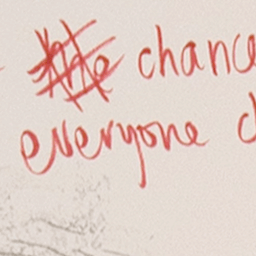 the chance
everyone